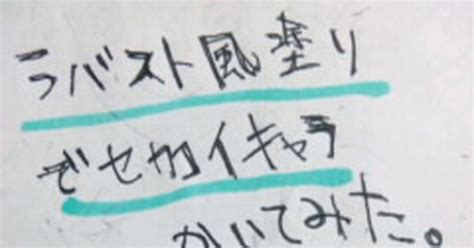 ラバスト風塗り
でセカイキャラ
かいてみた。